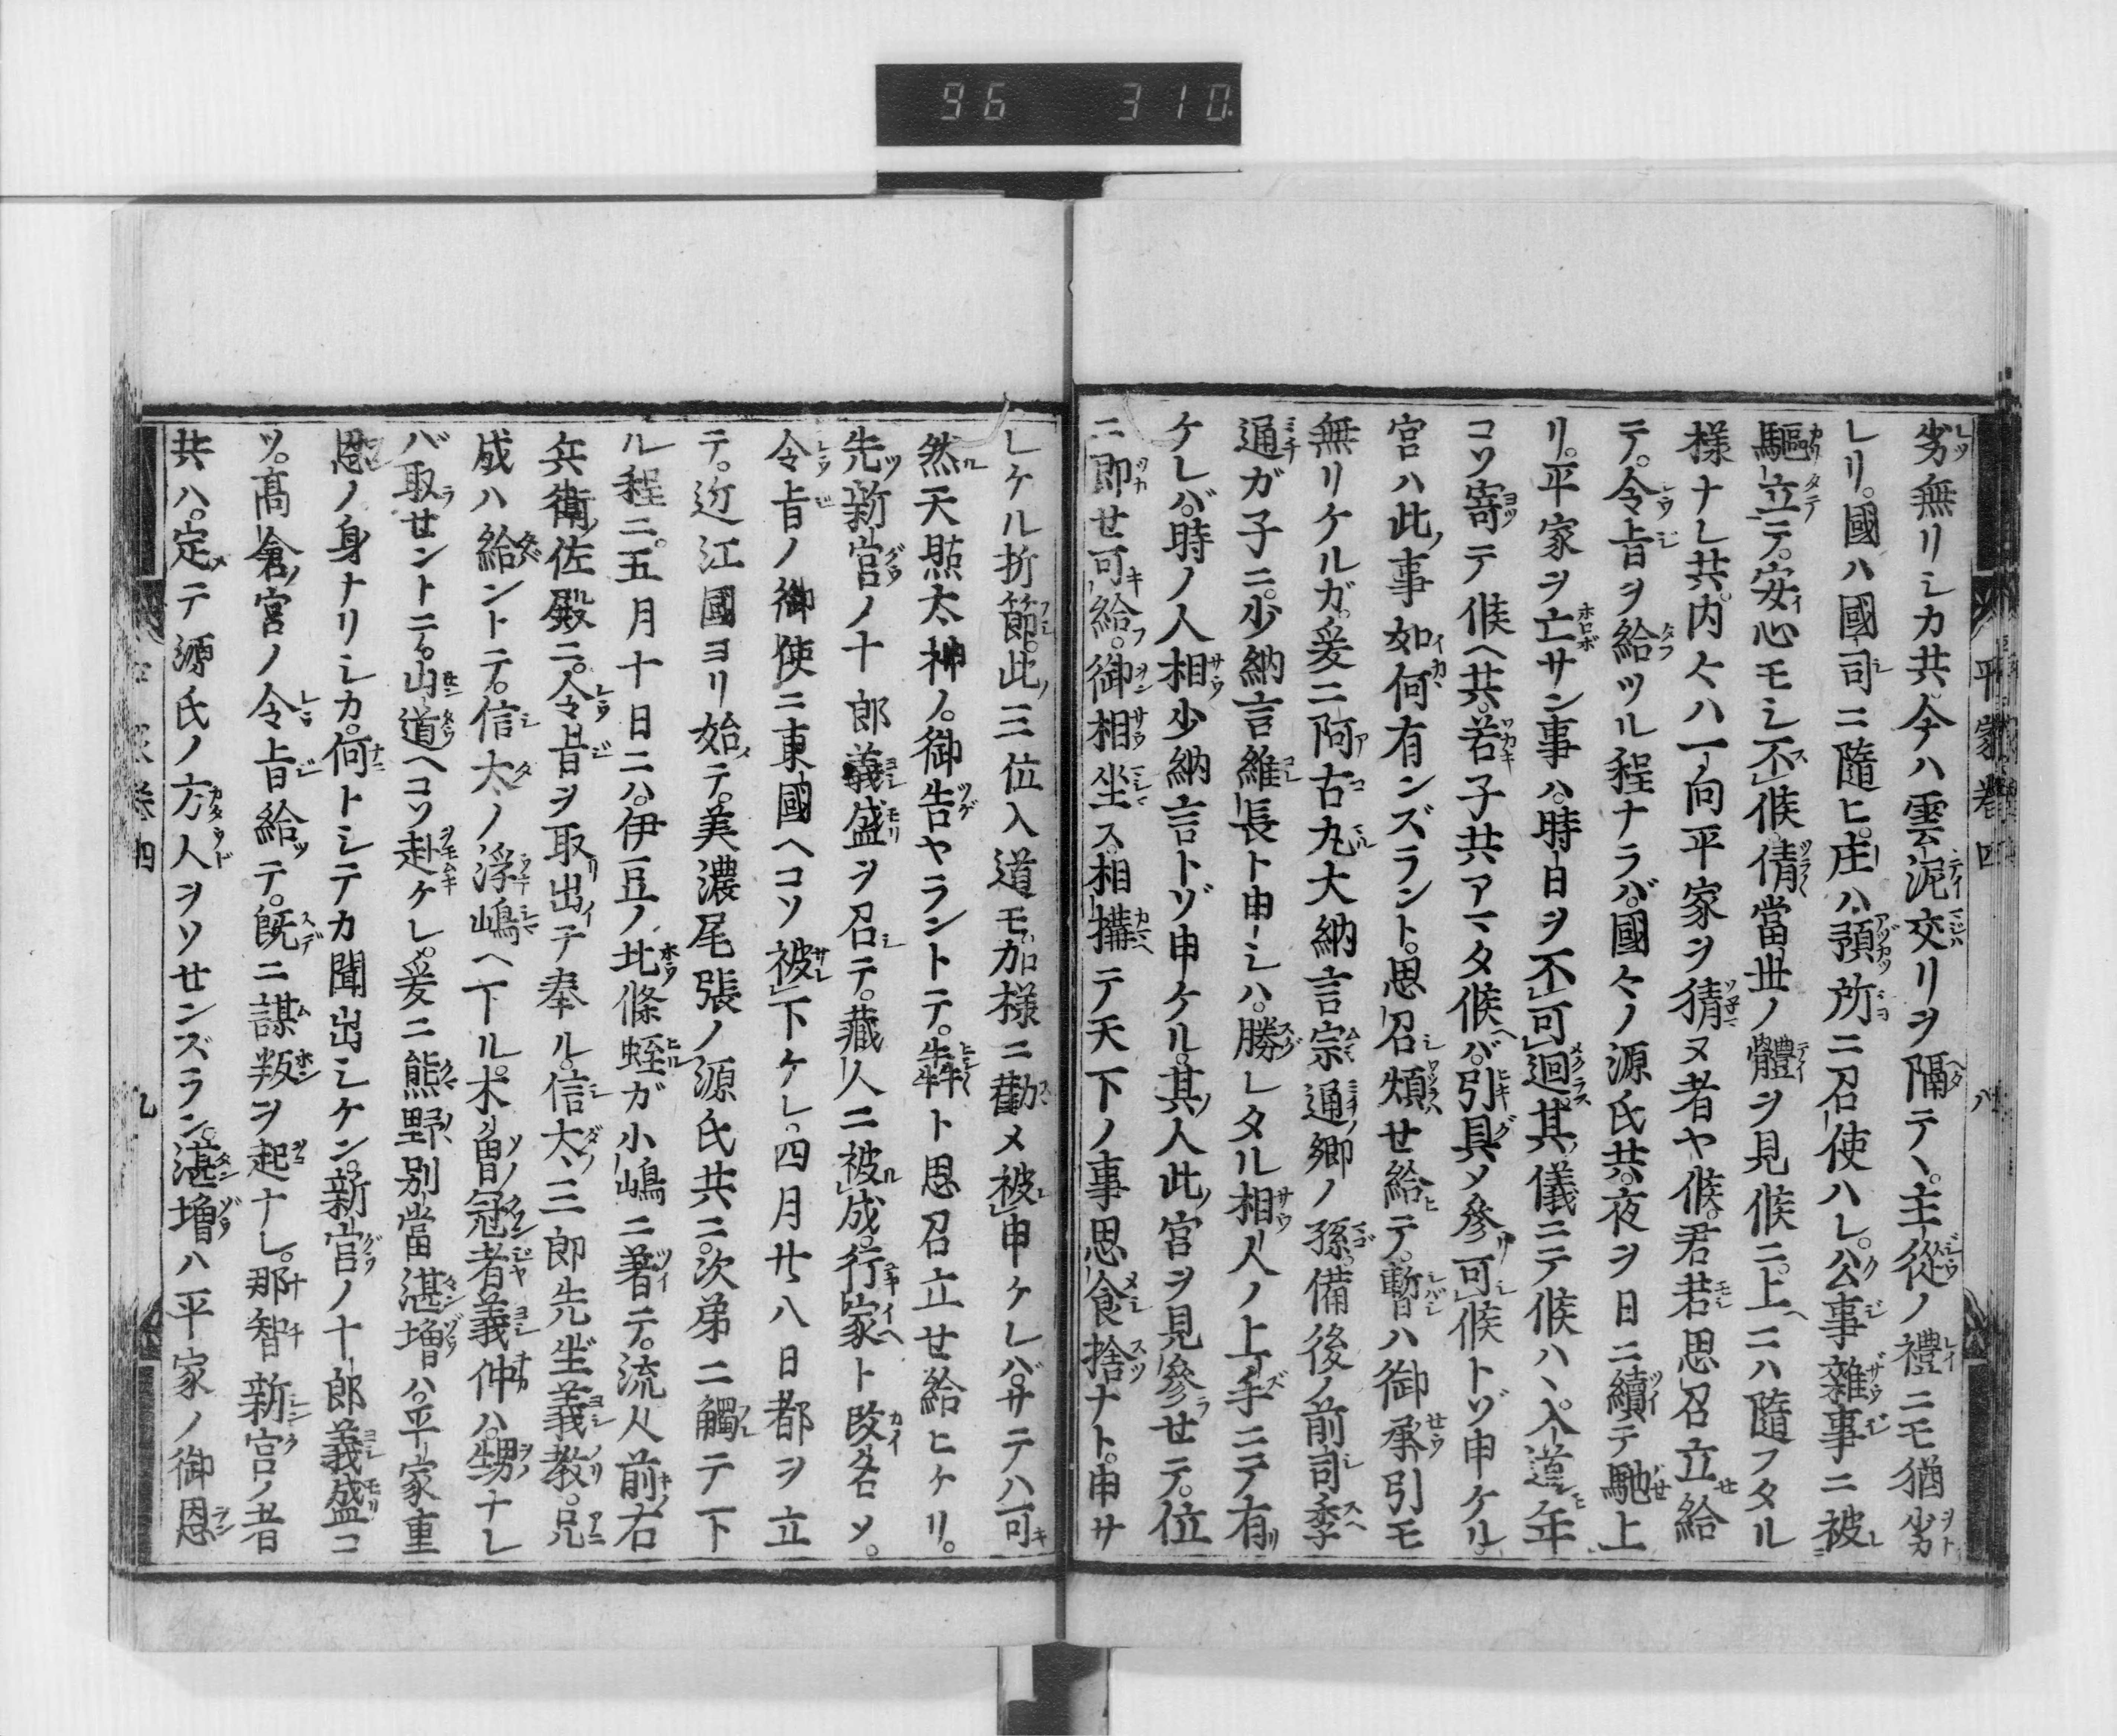 96 310
平家卷四 八
劣無リシカ共今ハ雲泥交リヲ隔テヽ。主從ノ禮ニモ猶劣
レリ。國ハ國司ニ隨ヒ。庄ハ預所ニ召使ハレ。公事雜事ニ被
驅立テ。安心モシ不候倩當世ノ體ヲ見候ニ。上ニハ隨フタル
樣ナレ共。内々ハ一向平家ヲ猜ヌ者ヤ候。君若思召立給
テ。令旨ヲ給ツル程ナラバ。國々ノ源氏共。夜ヲ日ニ續テ馳上
リ。平家ヲ亡サン事ハ。時日ヲ不可迴。其儀ニテ候ハヽ。入道年
コソ寄テ候ヘ共。若子共アマタ候ヘバ。引具メ參可候トゾ申ケル。
宮ハ此事如何有ンズラント。思召煩せ給テ。暫ハ御承引モ
無リケルガ。爰ニ阿古丸大納言宗通卿ノ孫。備後ノ前司季
通ガ子ニ。少納言維長ト申シハ。勝レタル相人ノ上手ニテ有
ケレバ。時ノ人相少納言トゾ申ケル。其人此宮ヲ見參せテ。位
ニ即せ可給。御相坐ス。相構テ天下ノ事思食捨ナト。申サ
レケル折節。此三位入道モカ樣ニ勸メ被申ケレバ。サテハ可
然天照太神ノ。御告ヤラントテ。犇ト思召立せ給ヒケリ。
先新宮ノ十郎義盛ヲ召テ。藏人ニ被成。行家ト改名ソ。
令旨ノ御使ニ東國ヘコソ被下ケレ。四月廿八日都ヲ立
テ。近江國ヨリ始テ。美濃尾張ノ源氏共ニ。次第ニ觸テ下
ル程ニ。五月十日ニハ。伊豆ノ北條蛭ガ小嶋ニ著テ。流人前右
兵衞佐殿ニ。令旨ヲ取出テ奉ル。信太三郎先生義教。兄
成ハ給ントテ。信太ノ浮嶋ヘ下ル。木曾冠者義仲ハ。甥ナレ
バ取ラせントニ。山道ヘコソ赴ケレ。爰ニ熊野別當湛増ハ。平家重
恩ノ身ナリシカ。何トシテカ聞出シケン。新宮ノ十郎義盛コ
ソ。髙倉宮ノ令旨給テ。既ニ謀叛ヲ起ナレ。那智新宮ノ者
共ハ。定テ源氏ノ方人ヲソせンズラン。湛増ハ平家ノ御恩
平家卷四 九